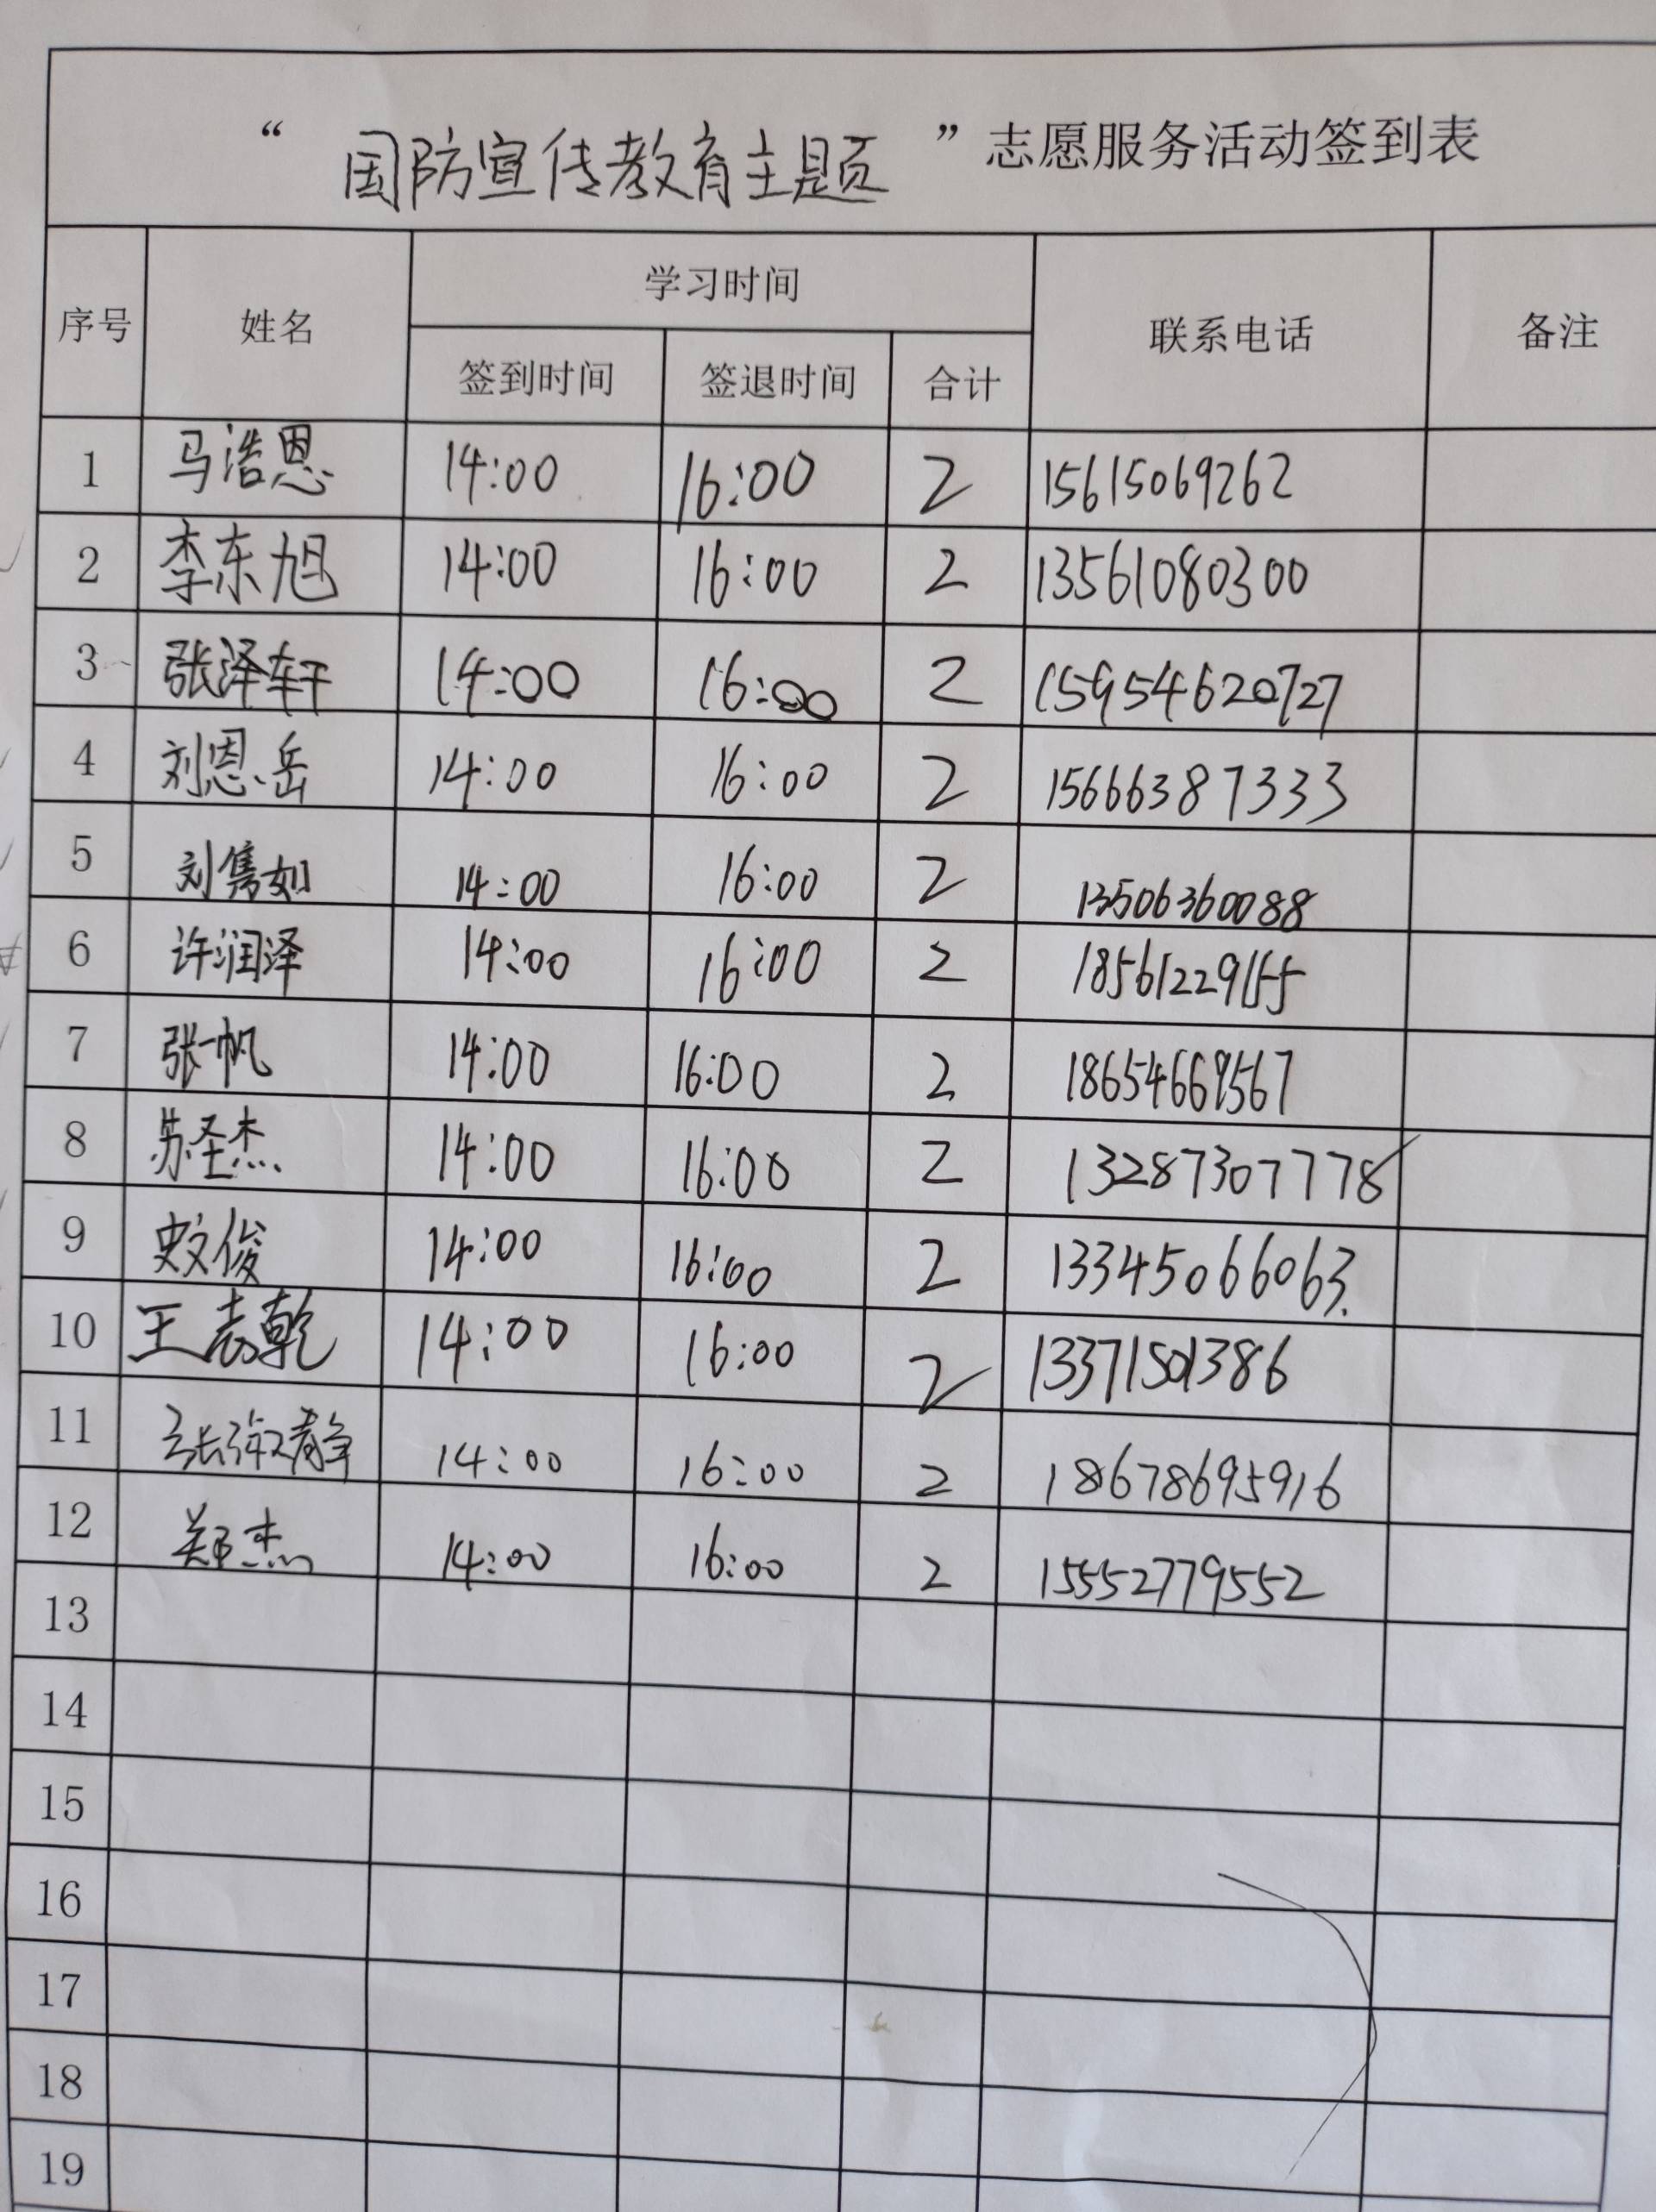 “国防宣传教育主题”志愿服务活动签到表
序号 姓名 学习时间 联系电话 备注
签到时间 签退时间 合计
1 马浩恩 14:00 16:00 2 15615069262
2 李东旭 14:00 16:00 2 13561080300
3 张泽轩 14:00 16:00 2 15954620727
4 刘恩岳 14:00 16:00 2 15666387333
5 刘隽如 14:00 16:00 2 13506360088
6 许润泽 14:00 16:00 2 18561229155
7 张一帆 14:00 16:00 2 18654669567
8 苏圣杰 14:00 16:00 2 13287307778
9 史文俊 14:00 16:00 2 13345066063
10 王志乾 14:00 16:00 2 13371501386
11 张淑静 14:00 16:00 2 18678695916
12 郑杰 14:00 16:00 2 15552779552
13
14
15
16
17
18
19